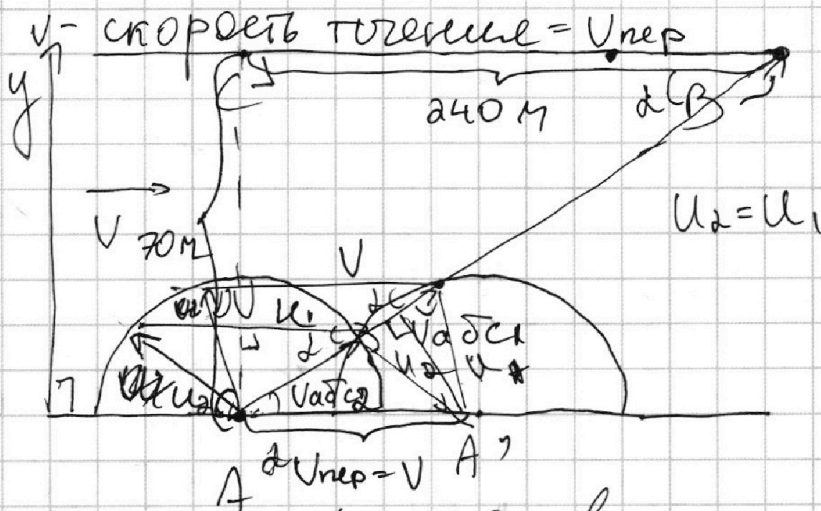 v - скорость течения = Vпер
y
C
240 м
α
B
V
70 м
U₂ = U₁
V
U₁
α
α
Vабс1
U₂
U₂
Vабс2
α
Vпер = V
A
A'